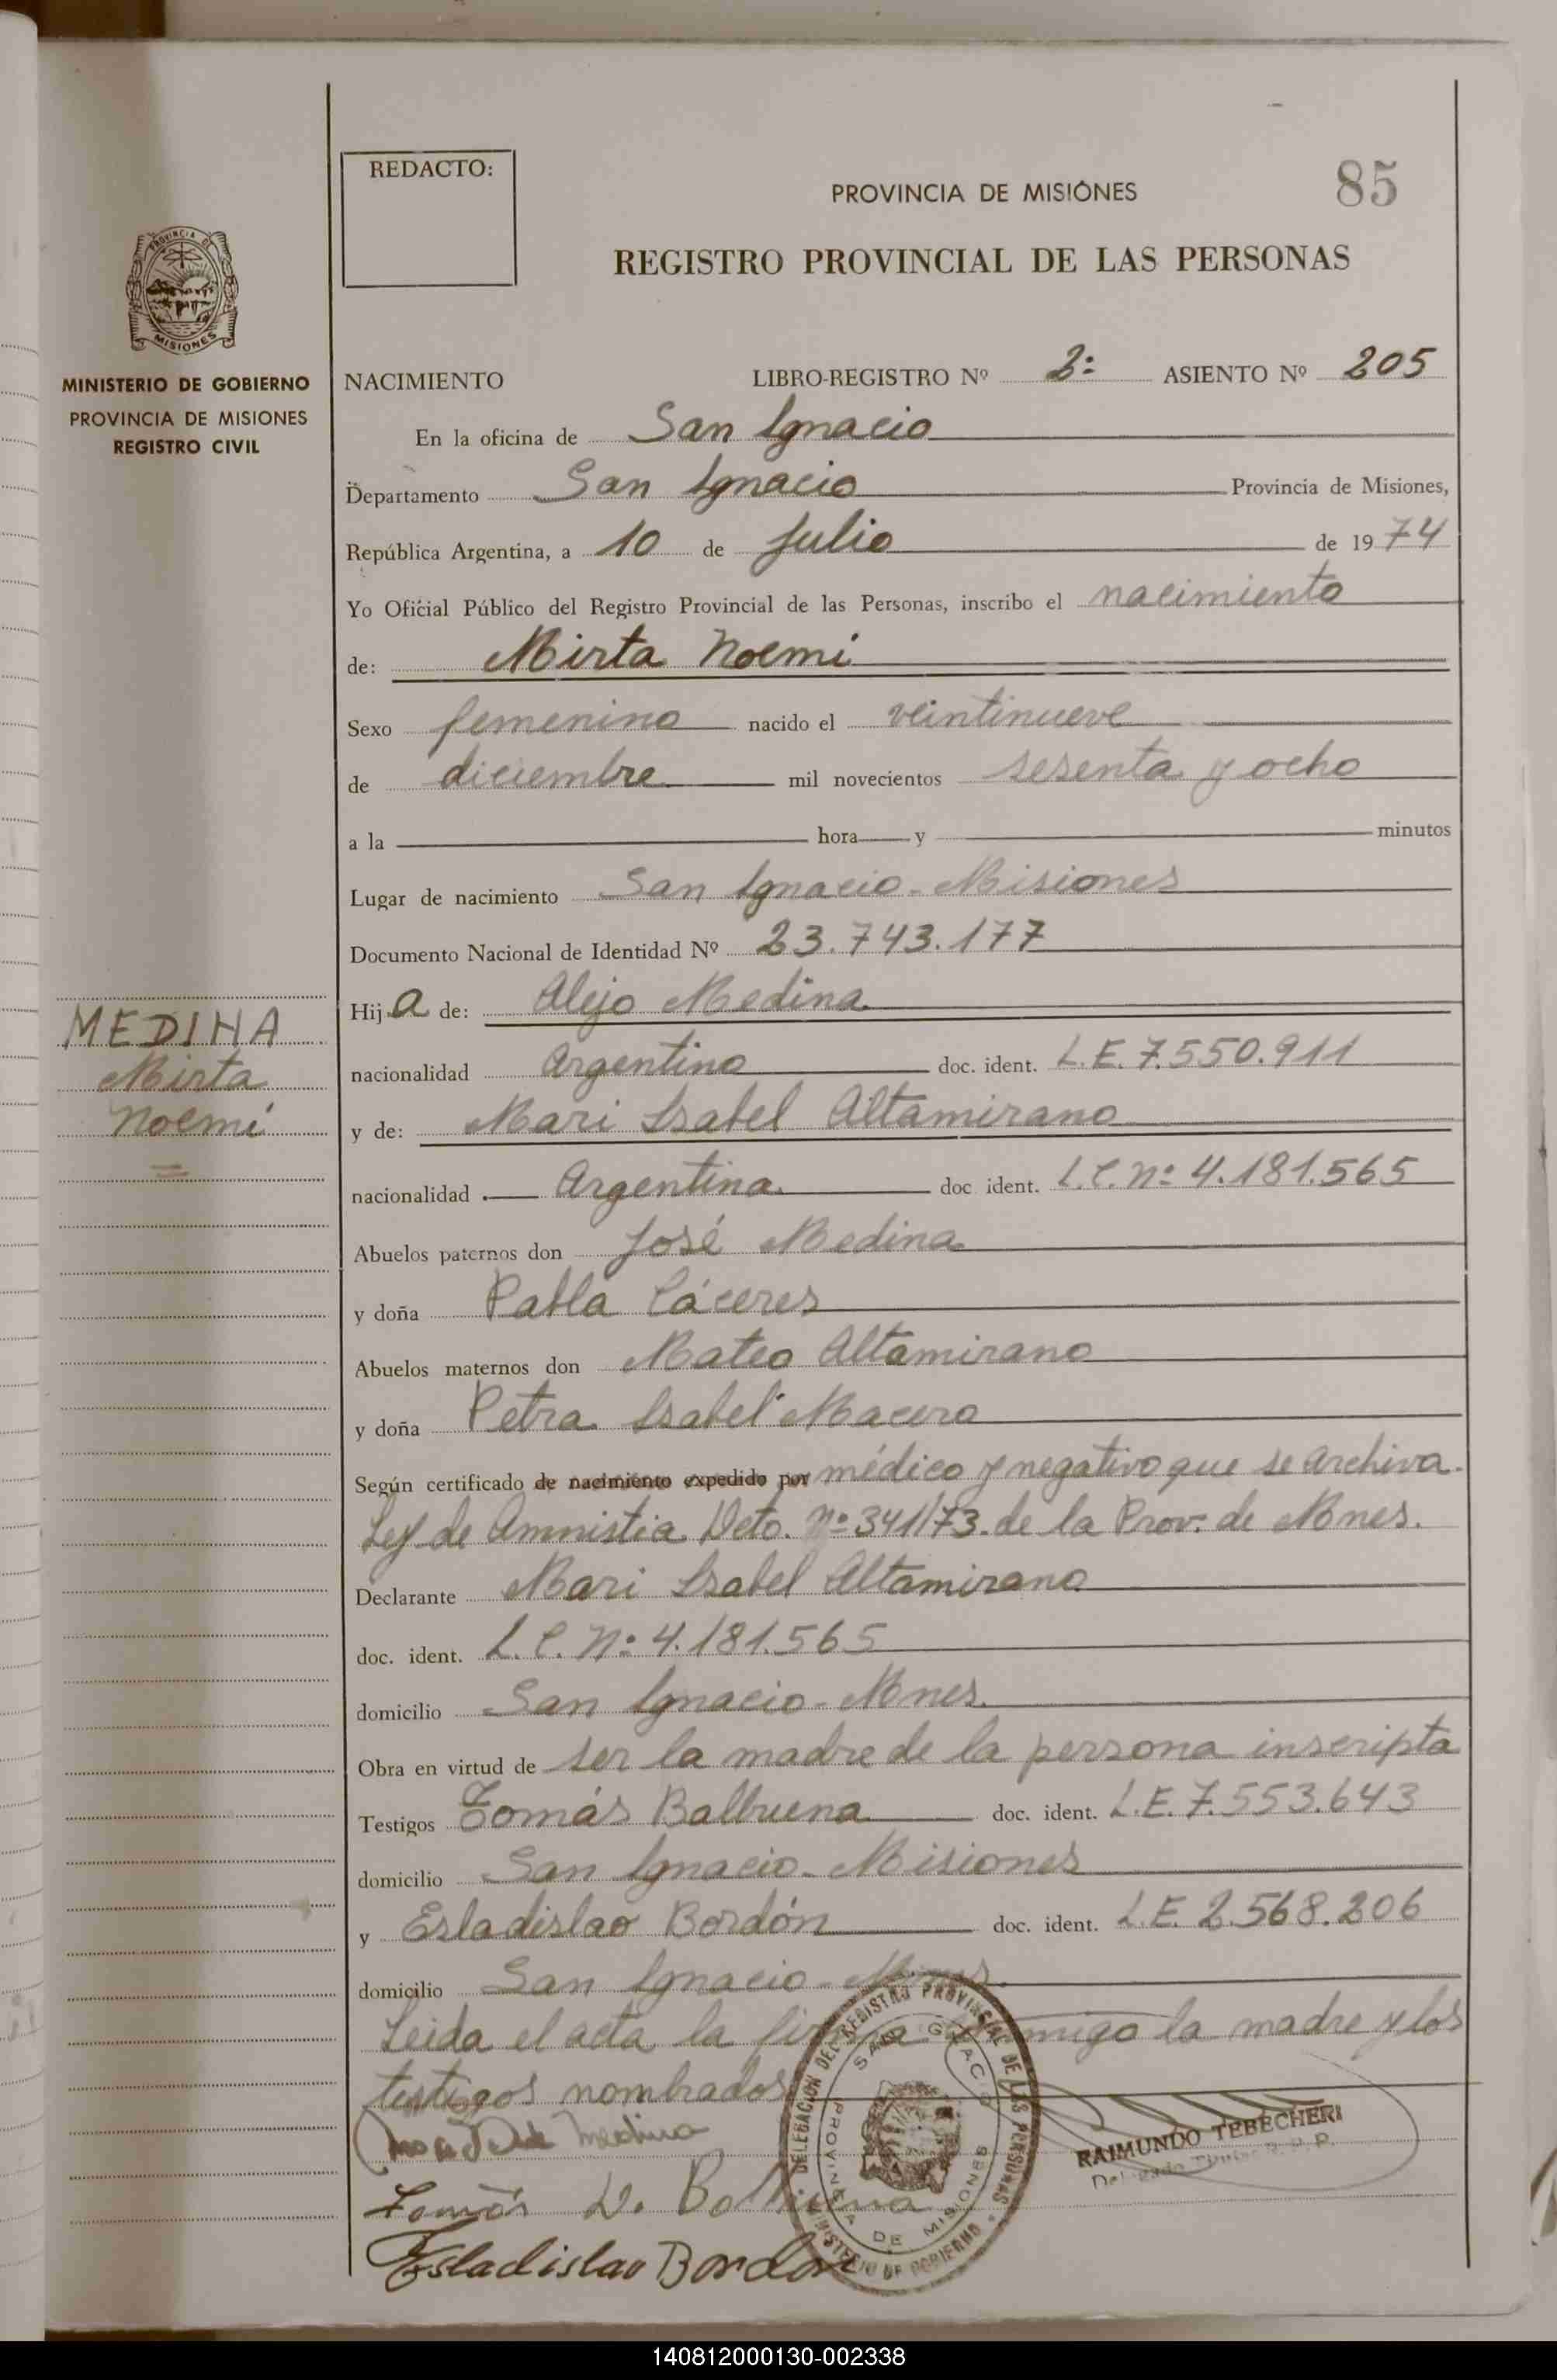 REDACTO:
85
PROVINCIA DE MISIONES
REGISTRO PROVINCIAL DE LAS PERSONAS
PROVINCIA DE
MISIONES
MINISTERIO DE GOBIERNO
PROVINCIA DE MISIONES
REGISTRO CIVIL
NACIMIENTO LIBRO-REGISTRO Nº 2: ASIENTO Nº 205
En la oficina de San Ignacio
Departamento San Ignacio Provincia de Misiones,
República Argentina, a 10 de Julio de 1974
Yo Oficial Público del Registro Provincial de las Personas, inscribo el nacimiento
de: Mirta Noemí
Sexo femenino nacido el veintinueve
de diciembre mil novecientos sesenta y ocho
a la hora y minutos
Lugar de nacimiento San Ignacio - Misiones
Documento Nacional de Identidad Nº 23.743.177
Hija de: Alejo Medina
MEDINA
Mirta
Noemí
nacionalidad Argentino doc. ident. L.E. 7.550.911
y de: Mari Isabel Altamirano
nacionalidad Argentina doc ident. L.C. nº 4.181.565
Abuelos paternos don José Medina
y doña Pabla Cáceres
Abuelos maternos don Mateo Altamirano
y doña Petra Isabel Macero
Según certificado de nacimiento expedido por médico y negativo que se archiva.
Ley de Amnistia Dcto. nº 341/73. de la Prov. de Mnes.
Declarante Mari Isabel Altamirano
doc. ident. L.C. nº 4.181.565
domicilio San Ignacio - Mnes.
Obra en virtud de ser la madre de la persona inscripta
Testigos Tomás Balbuena doc. ident. L.E. 7.553.643
domicilio San Ignacio - Misiones
y Esladislao Bordón doc. ident. L.E. 2.568.206
domicilio San Ignacio - Mnes.
Leida el acta la firma conmigo la madre y los
testigos nombrados
DELEGACION DEL REGISTRO PROVINCIAL DE LAS PERSONAS
SAN IGNACIO
PROVINCIA DE MISIONES
MINISTERIO DE GOBIERNO
de Medina
RAIMUNDO TEBECHERI
Delegado Titular R. P. P.
Tomás V. Balbuena
Esladislao Bordon
140812000130-002338